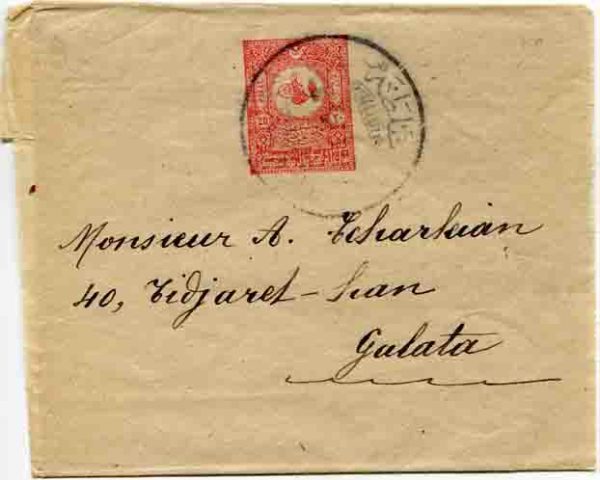 Monsieur A. Tcharkian
40, Tidjaret-Han
Galata